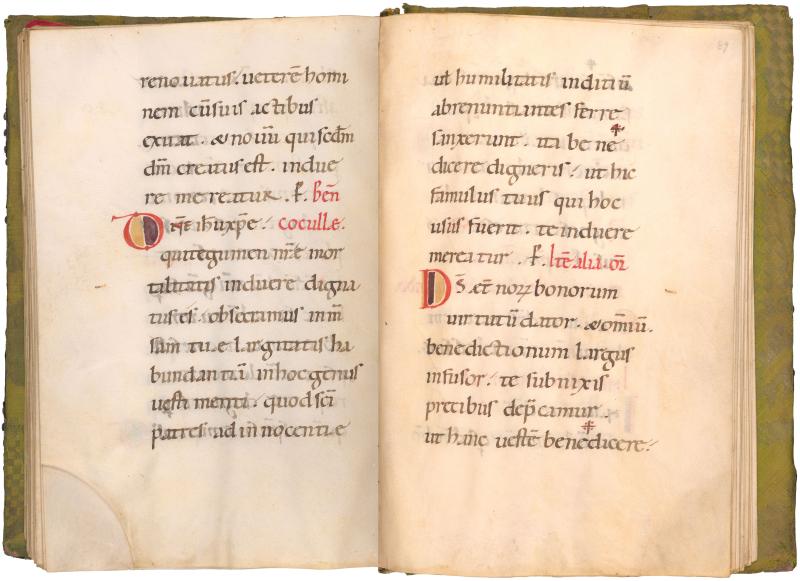 renouatus. ueterē homi
nem cū suis actibus
exuat. & nouū qui scdm̄
dm̄ creatus est. indue
re mereatur. P̄. Ben̄
Dn̄e ihū xp̄e. coculle.
qui tegumen nr̄e mor
talitatis induere digna
tus es. obsecramus inm̄
sam tue largitatis ha
bundantiā. ut hoc genus
uestimenti. quod sc̄i
patres ad innocentie
89
ut humilitatis inditiū
abrenuntiantes ferre
sanxerunt. ita bene
dicere digneris. ut hic
famulus tuus qui hoc
usus fuerit. te induere
mereatur. P̄. Itē alia or̄
Ds̄ aet̄norꝝ bonorum
uirtutū dator. & om̄iū.
benedictionum largus
infusor. te subnixis
precibus dep̄camur.
ut hanc uestē benedicere.